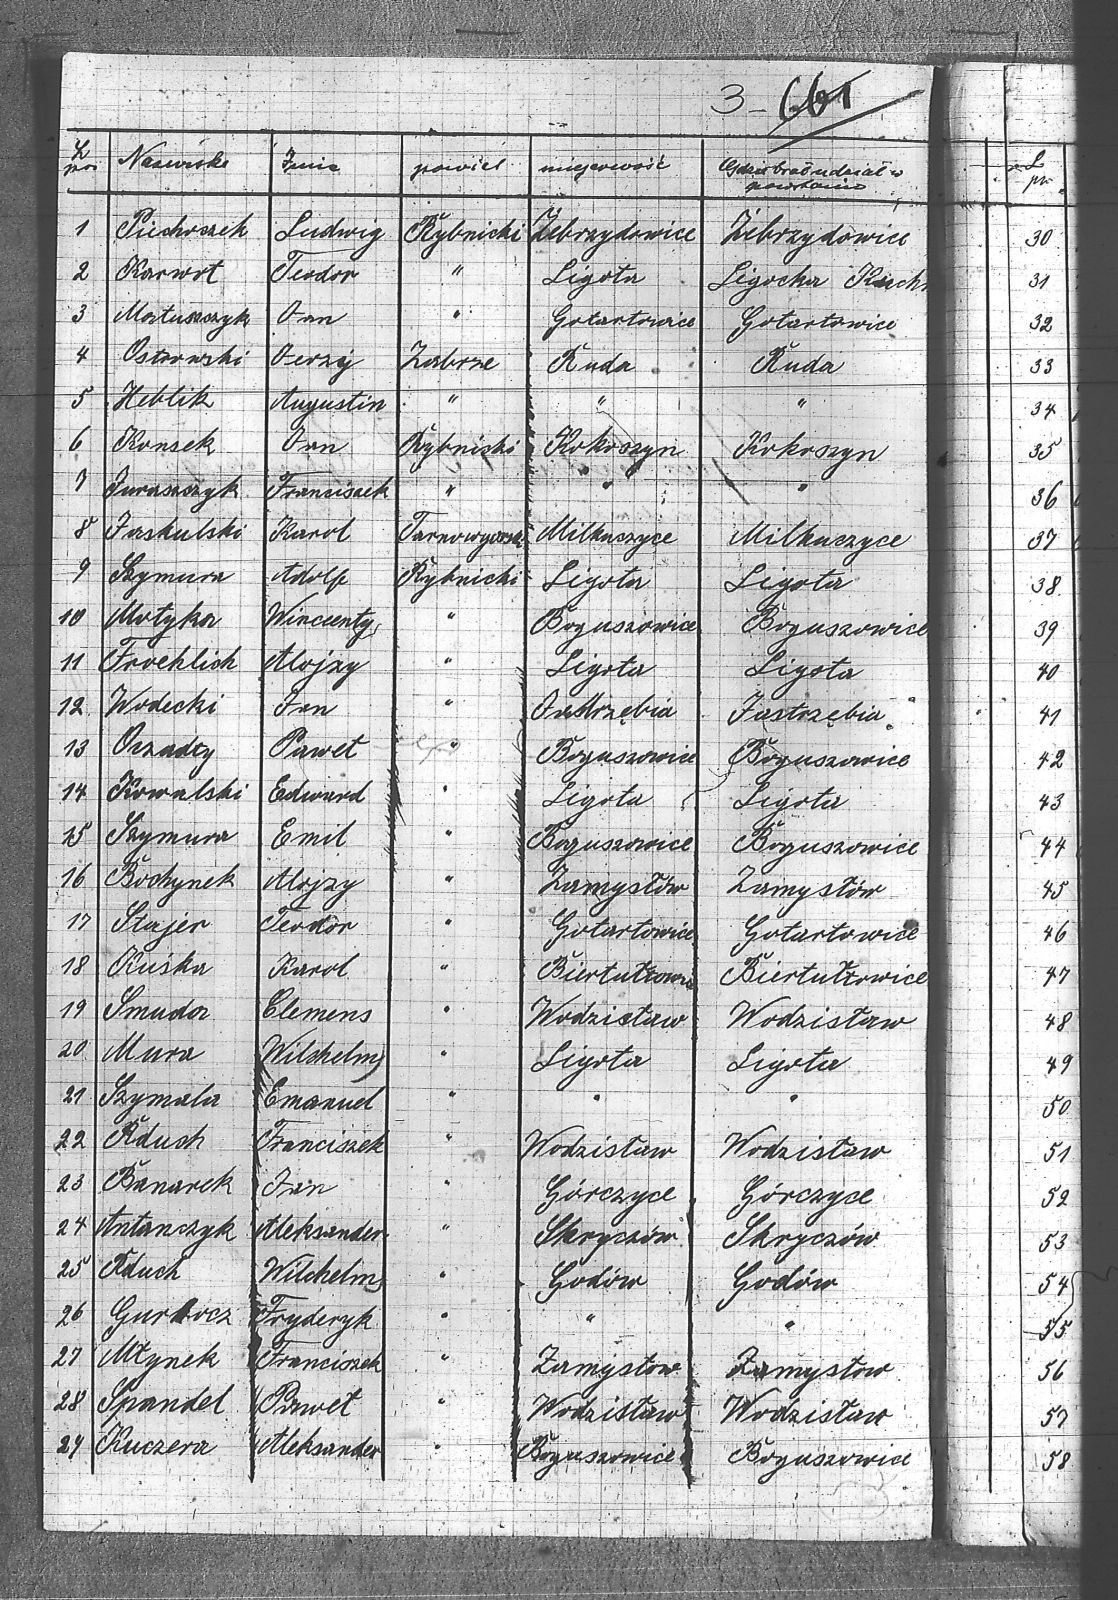 3 - 661
L por Nazwisko Imie powiet miejscowość Gdzie brał udział w
powstaniu
1 Piechoczek Ludwig Rybnicki Żebrzydowice Żebrzydowice
2 Karwot Teodor " Ligota Ligocka
3 Matuszczyk Jan " Gotartowice Gotartowice
4 Ostrowski Jerzy Zabrze Ruda Ruda
5 Heblik Augustin " " "
6 Konsek Jan Rybnicki Kokoszyn Kokoszyn
7 Juraszczyk Franciszek " " "
8 Jaskulski Karol Milkuczyce Milkuczyce
9 Szymura Adolf Rybnicki Ligota Ligota
10 Motyka Wincenty " Boguszowice Boguszowice
11 Froehlich Alojzy " Ligota Ligota
12 Wodecki Jan " Jastrzębia Jastrzębia
13 Paweł " Boguszowice Boguszowice
14 Kowalski Edward " Ligota Ligota
15 Szymura Emil " Boguszowice Boguszowice
16 Bochynek Alojzy " Zamysłów Zamysłów
17 Stajer Teodor " Gotartowice Gotartowice
18 Kuśka Karol " Biertułtowice Biertułtowice
19 Smuda Clemens " Wodzisław Wodzisław
20 Mura Wilchelm " Ligota Ligota
21 Szymala Emanuel " " "
22 Rduch Franciszek " Wodzisław Wodzisław
23 Banarek Jan " Górczyce Górczyce
24 Antanczyk Aleksander " Skryczów Skryczów
25 Rduch Wilchelm " Godów Godów
26 Fryderyk " " "
27 Młynek Franciszek " Zamysłow Zamysłow
28 Spandel Paweł " Wodzisław Wodzisław
29 Kuczera Aleksander " Boguszowice Boguszowice
L
pr
30
31
32
33
34
35
36
37
38
39
40
41
42
43
44
45
46
47
48
49
50
51
52
53
54
55
56
57
58